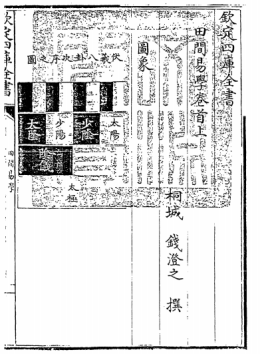 欽定四庫全書
田間易學卷首上
桐城 錢澄之 撰
圖象
伏羲八卦次序之圖
太陽
少陰
少陽
太陰
太極
田間易學